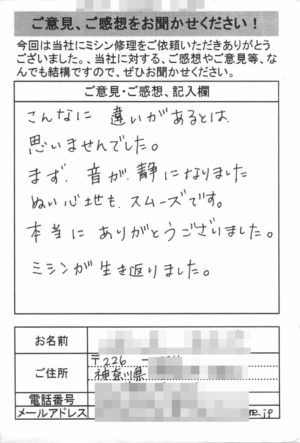 ご意見、ご感想をお聞かせください！
今回は当社にミシン修理をご依頼いただきありがとう
ございました。、当社に対する、ご感想やご意見等、な
んでも結構ですので、ぜひお聞かせください。
ご意見・ご感想、記入欄
こんなに 違いがあるとは
思いませんでした。
まず、音が、静になりました
ぬい心地も、スムーズです。
本当に ありがとうございました。
ミシンが生き返りました。
お名前
ご住所
〒226 -
神奈川県
電話番号
メールアドレス
ne.jp